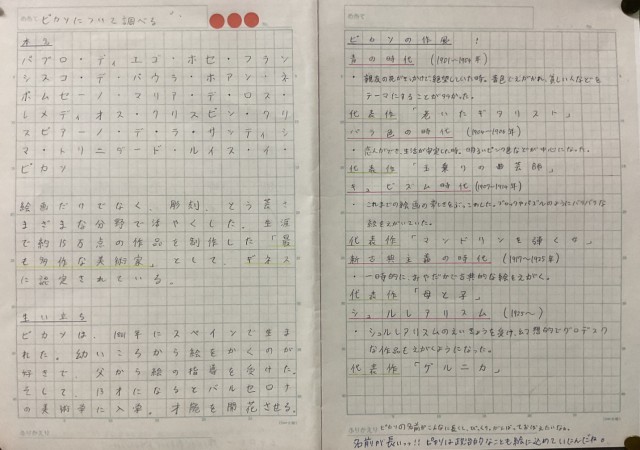 ピカソについて調べる
本名
パブロ・ディエゴ・ホセ・フラン
シスコ・デ・パウラ・ホアン・ネ
ポムセーノ・マリア・デ・ロス・
レメディオス・クリスピン・クリ
スピアーノ・デ・ラ・サンティシ
マ・トリニダード・ルイス・イ・
ピカソ
絵画だけでなく、彫刻、とう芸さ
まざまな分野で活やくした。生涯
で約15万点の作品を制作した「最
も多作な美術家」として、ギネス
に認定されている。
生い立ち
ピカソは、1881年にスペインで生ま
れた。幼いころから絵をかくのが
好きで、父から絵の指導を受けた。
そして、13才になるとバルセロナ
の美術学に入学。才能を開花させる。
ピカソの作風
青の時代 (1901~1904年)
・親友の死がきっかけで絶望していた時。青色でえがかれ、貧しい人などを
テーマにすることが多かった。
代表作「老いたギタリスト」
バラ色の時代 (1904~1906年)
・恋人ができ、生活が安定した時。明るいピンク色などが中心になった。
代表作「玉乗りの曲芸師」
キュビズム時代 (1907~1914年)
・これまでの絵画の常しきをぶっこわした。ブロックやパズルのようにバラバラな
絵をえがいていた。
代表作「マンドリンを弾く女」
新古典主義の時代 (1917~1925年)
・一時的に、おだやかで古典的な絵をえがく。
代表作「母と子」
シュルレアリスム (1925~)
・シュルレアリスムのえいきょうを受け、幻想的でグロテスク
な作品をえがくようになった。
代表作「ゲルニカ」
ふりかえり
名前が長いッ!! ピカソは政治的なことも絵に込めていたんだね。